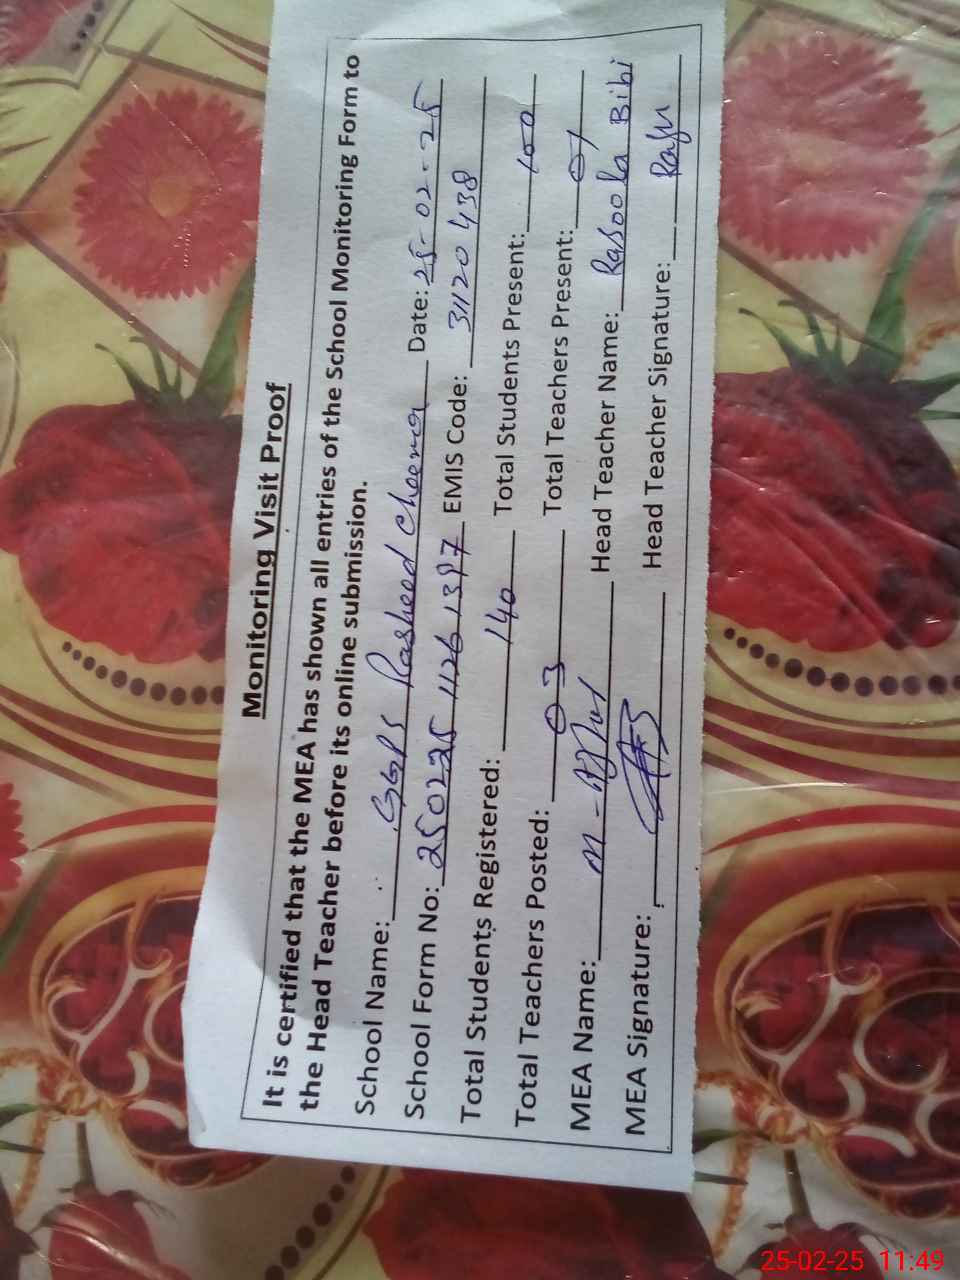 Monitoring Visit Proof
It is certified that the MEA has shown all entries of the School Monitoring Form to
the Head Teacher before its online submission.
School Name: GGPS Rasheed Cheema Date: 25-02-25
School Form No: 250225 1126 1397 EMIS Code: 31120438
Total Students Registered: 140 Total Students Present: 100
Total Teachers Posted: 03 Total Teachers Present: 01
MEA Name: M - Head Teacher Name: Rasoola Bibi
MEA Signature: Head Teacher Signature:
25-02-25 11:49